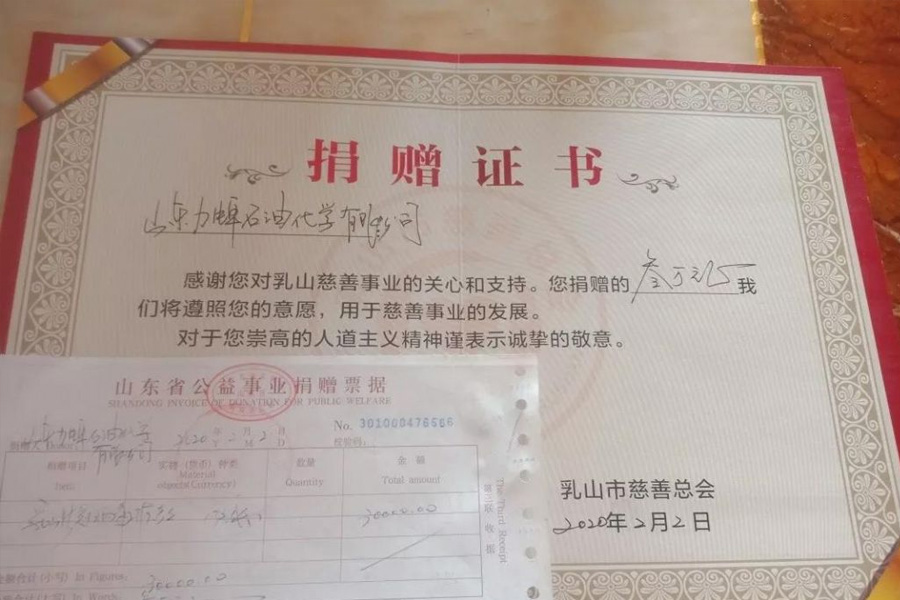 捐赠证书
山东力韩石油化学有限公司
感谢您对乳山慈善事业的关心和支持。您捐赠的 叁万元 我
们将遵照您的意愿，用于慈善事业的发展。
对于您崇高的人道主义精神谨表示诚挚的敬意。
乳山市慈善总会
2020年2月2日
山东省公益事业捐赠票据
SHANDONG INVOICE OF DONATION FOR PUBLIC WELFARE
No. 301000476666
2020 年 2 月 2 日
Y M D
校验码：
捐赠项目 实物（货币）种类 数量 金额
Item Material objects(Currency) Quantity Total amount
30000.00
金额合计(小写) In Figures: 30000.00
金额合计(大写) In Words
第三联 收据
The Third Receipt